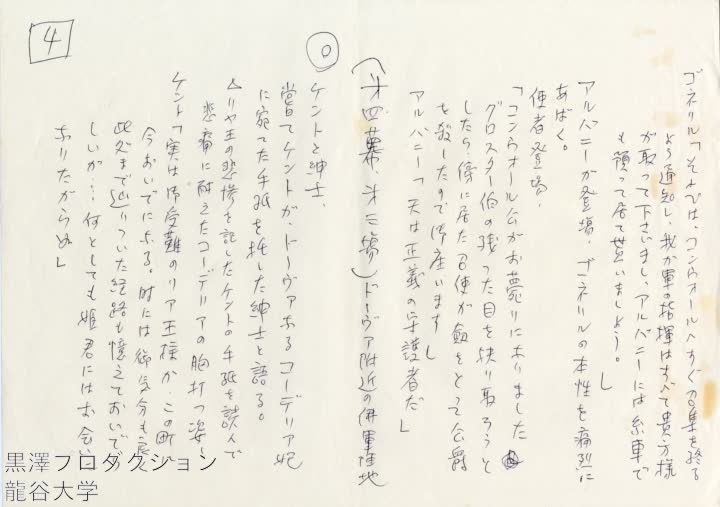 ゴネリル「それでは、コンウォールへすぐ召集を終る
よう通知し、我が軍の指揮はすべて貴方様
が取って下さいまし、アルバニーには糸車で
も預って居て貰いましょう。」
アルバニーが登場、ゴネリルの本性を痛烈に
あばく。
使者登場、
「コンウォール公がお薨りになりました
グロスター伯の残った目を抉り取ろうと
したら、傍に居た召使が剣をとって公爵
を殺したので御座います」
アルバニー「天は正義の守護者だ」
(第四幕、第三場)ドーヴァ附近の併軍陣地
ケントと紳士、
嘗てケントが、ドーヴァなるコーデリア妃
に宛てた手紙を托した紳士と語る。
△リヤ王の悲惨を記したケントの手紙を読んで
悲痛に耐えたコーデリアの胸打つ姿―
ケント「実は御受難のリア王様が、この町に
今おいでになる。時には御気分も良く
此処まで辿りついた経路も憶えておいでゞ
しいが…何としても姫君にはお会い
なりたがらぬ」
4
0
黒澤プロダクション
龍谷大学